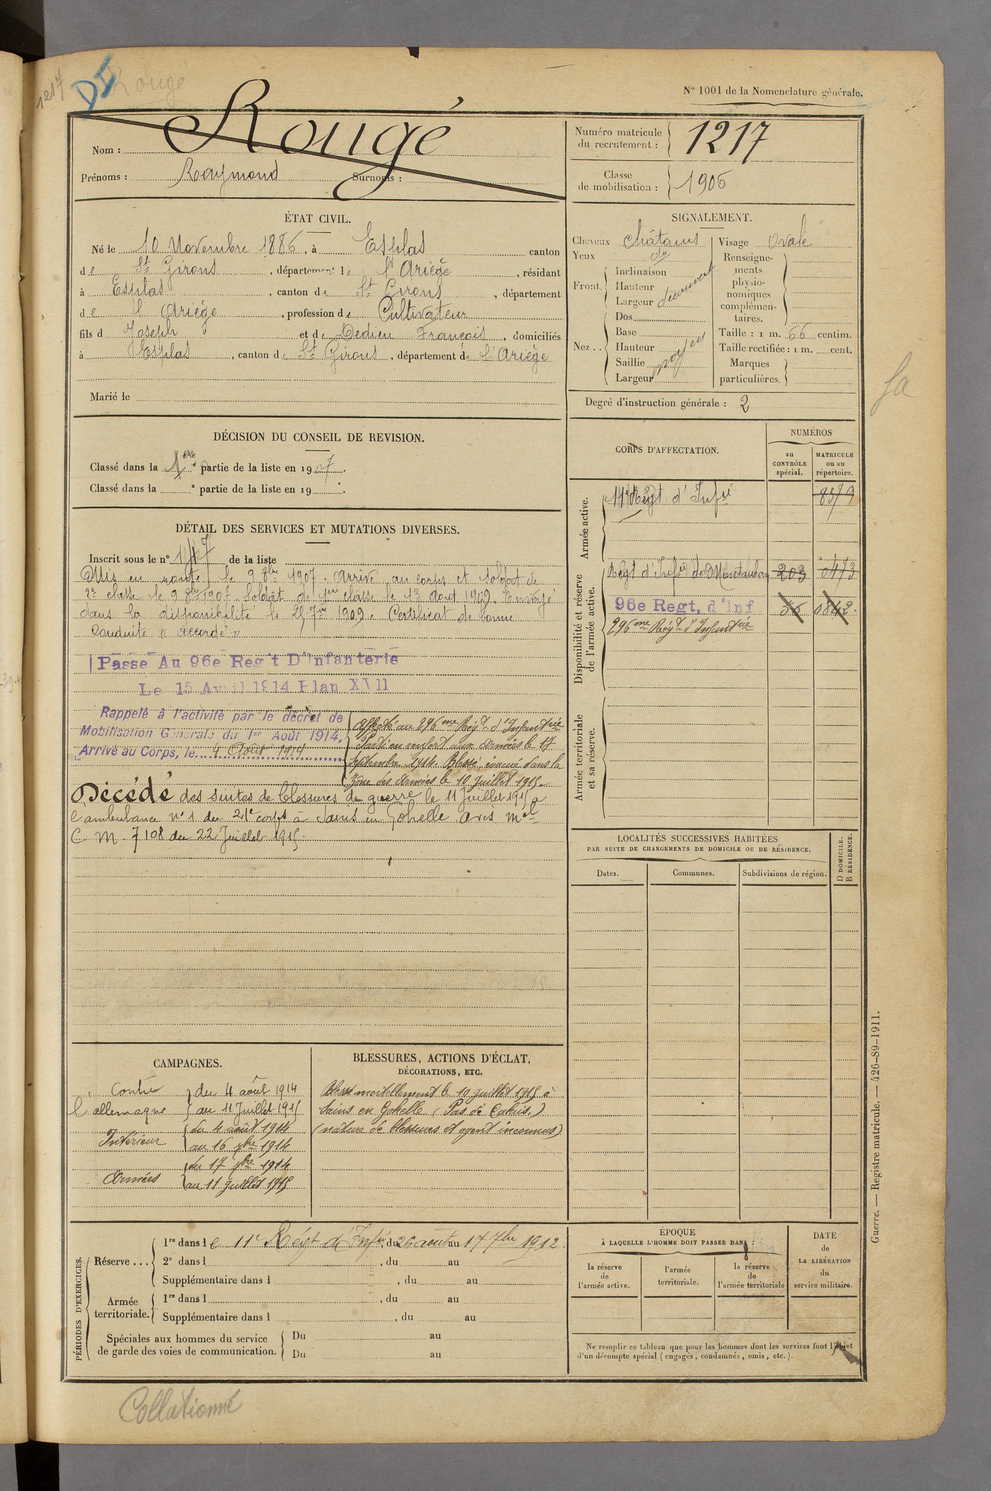 1217
DI
Rougé
N° 1001 de la Nomenclature générale.
Nom : Rougé
Prénoms : Raymond Surnoms :
Numéro matricule du recrutement : 1217
Classe de mobilisation : 1906
ÉTAT CIVIL.
Né le 10 Novembre 1886, à Esplas, canton
de St Girons, département de l'Ariège, résidant
à Esplas, canton de St Girons, département
de l'Ariège, profession de Cultivateur
fils de Joseph et de Dedieu François, domiciliés
à Esplas, canton de St Girons, département de l'Ariège
Marié le
SIGNALEMENT.
Cheveux châtains
Yeux
Front. Inclinaison
Hauteur
Largeur
Nez.. Dos
Base
Hauteur moyen
Saillie
Largeur
Visage ovale
Renseignements physionomiques complémentaires.
Taille : 1 m. 66 centim.
Taille rectifiée : 1 m. cent.
Marques particulières.
Degré d'instruction générale : 2
fa
DÉCISION DU CONSEIL DE REVISION.
Classé dans la 1re partie de la liste en 1907.
Classé dans la e partie de la liste en 19 .
DÉTAIL DES SERVICES ET MUTATIONS DIVERSES.
Inscrit sous le n° 117 de la liste
Mis en route le 9 8bre 1907. Arrivé au corps et soldat de
2e classe le 9 8bre 1907. Soldat de 1ere classe le 13 août 1909. Envoyé
dans la disponibilité le 25 7bre 1909. Certificat de bonne
conduite "accordé"
Passé Au 96e Reg't D'Infanterie
Le 15 Avril 1914 Plan XVII
Rappelé à l'activité par le décret de
Mobilisation Générale du 1er Août 1914,
Arrivé au Corps, le 4 Août 1914
Affecté au 296me Regt d'Infanterie
Parti en renfort aux armées le 17
septembre 1914. Blessé, évacué dans la
zone des armées le 10 juillet 1915.
Décédé des suites de blessures de guerre le 11 Juillet 1915 à
l'ambulance n° 1 du 21e corps à Sains en Gohelle avis mel
C M 7108 du 22 Juillet 1915.
CORPS D'AFFECTATION.
NUMÉROS
au CONTRÔLE spécial.
MATRICULE ou au répertoire.
Armée active.
Régt d'Infie
Disponibilité et réserve de l'armée active.
Régt d'Infie de Montauban 203
96e Regt, d'Inf 36
296me Régt d'Infanterie
Armée territoriale et sa réserve.
LOCALITÉS SUCCESSIVES HABITÉES
PAR SUITE DE CHANGEMENTS DE DOMICILE OU DE RÉSIDENCE.
Dates.
Communes.
Subdivisions de région.
D DOMICILE.
R RÉSIDENCE.
CAMPAGNES.
Contre l'allemagne du 4 août 1914
au 11 Juillet 1915
Intérieur du 4 août 1914
au 16 7bre 1914
Armées du 17 7bre 1914
au 11 juillet 1915
BLESSURES, ACTIONS D'ÉCLAT,
DÉCORATIONS, ETC.
Blessé mortellement le 10 juillet 1915 à
Sains en Gohelle (Pas de Calais.)
(nature de blessures et agent inconnus)
PÉRIODES D'EXERCICES.
Réserve ... 1re dans le 11e Régt d'Infie, du 26 aout au 17 7bre 1912.
2e dans l , du au
Supplémentaire dans l , du au
Armée territoriale. 1re dans l , du au
Supplémentaire dans l , du au
Spéciales aux hommes du service de garde des voies de communication.
Du au
Du au
ÉPOQUE
À LAQUELLE L'HOMME DOIT PASSER DANS :
la réserve de l'armée active.
l'armée territoriale.
la réserve de l'armée territoriale
DATE de LA LIBÉRATION du service militaire.
Ne remplir ce tableau que pour les hommes dont les services font l'objet
d'un décompte spécial (engagés, condamnés, omis, etc.).
Guerre. — Registre matricule. — 426-89-1911.
Collationné